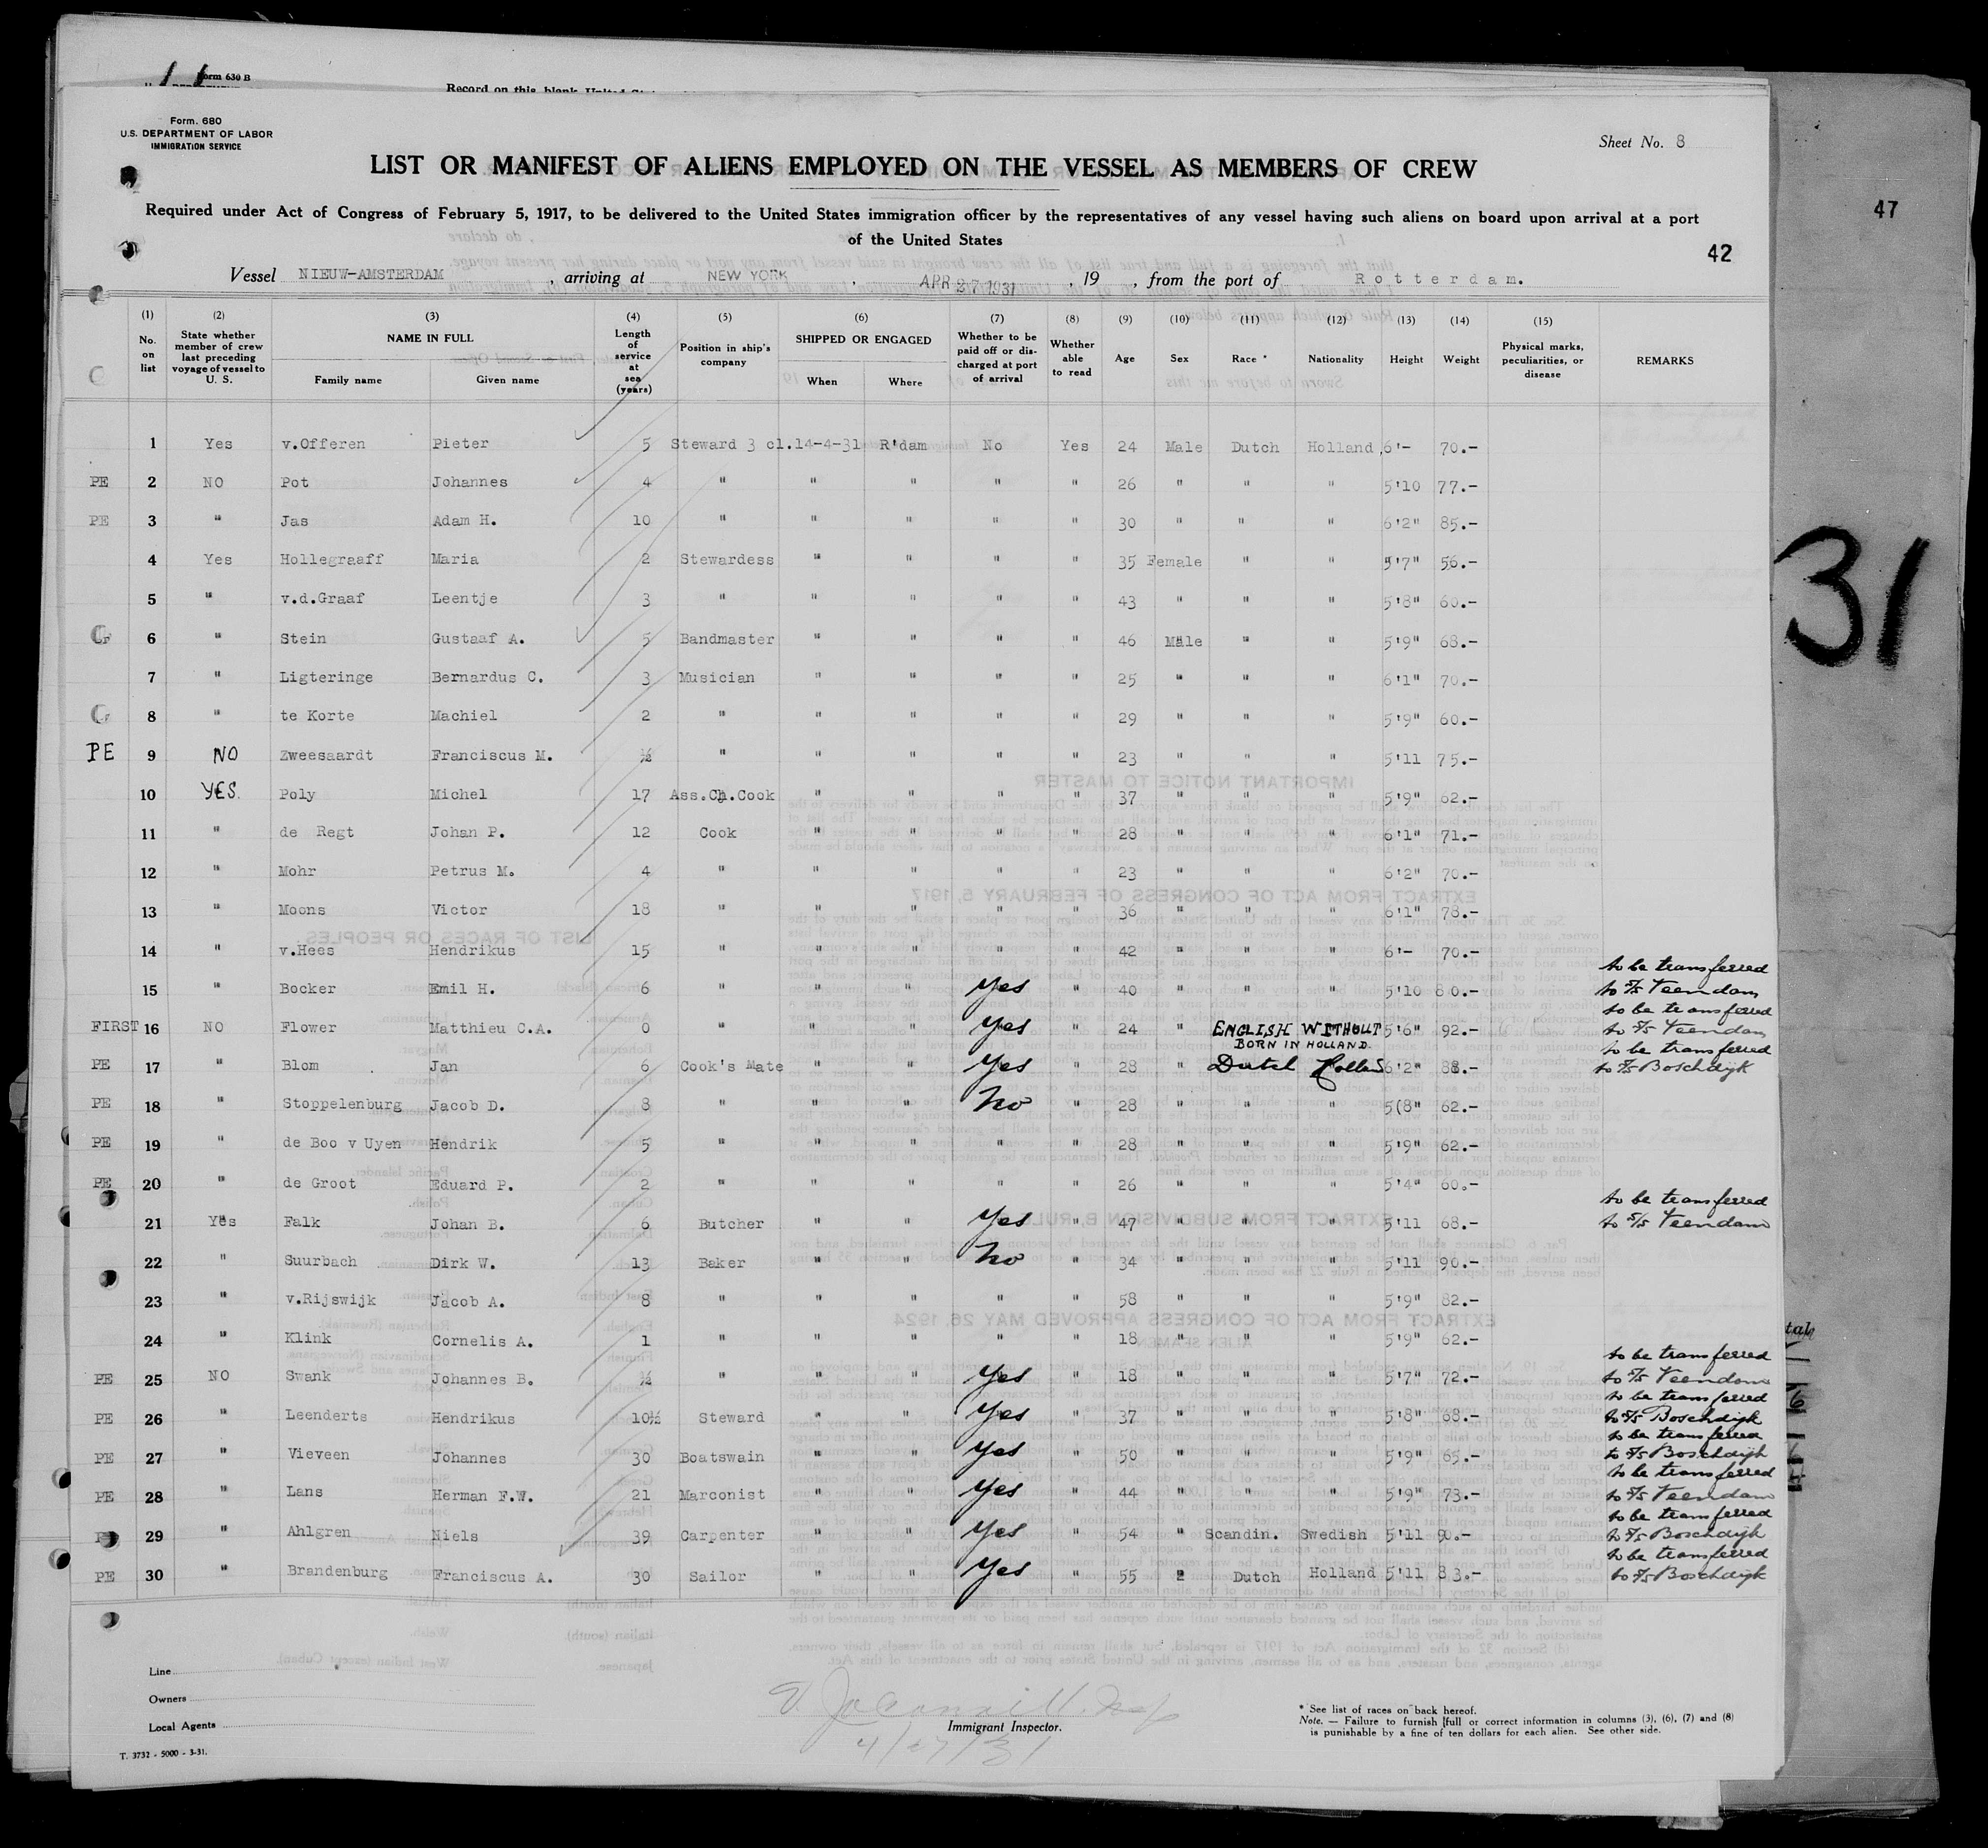 Form 630 B
Record on this blank United
Form. 680
U.S. DEPARTMENT OF LABOR
IMMIGRATION SERVICE
Sheet No. 8
LIST OR MANIFEST OF ALIENS EMPLOYED ON THE VESSEL AS MEMBERS OF CREW
Required under Act of Congress of February 5, 1917, to be delivered to the United States immigration officer by the representatives of any vessel having such aliens on board upon arrival at a port
of the United States
47
42
31
Vessel NIEUW-AMSTERDAM, arriving at NEW YORK, APR 27 1931, 19 , from the port of Rotterdam.
(1) (2) (3) (4) (5) (6) (7) (8) (9) (10) (11) (12) (13) (14) (15)
No. on list | State whether member of crew last preceding voyage of vessel to U. S. | NAME IN FULL | Family name | Given name | Length of service at sea (years) | Position in ship's company | SHIPPED OR ENGAGED | When | Where | Whether to be paid off or discharged at port of arrival | Whether able to read | Age | Sex | Race * | Nationality | Height | Weight | Physical marks, peculiarities, or disease | REMARKS
1 Yes v.Offeren Pieter 5 Steward 3 cl. 14-4-31 R'dam No Yes 24 Male Dutch Holland 6'- 70.-
PE 2 NO Pot Johannes 4 " " " " " 26 " " " 5'10 77.-
PE 3 " Jas Adam H. 10 " " " " " 30 " " " 6'2" 85.-
4 Yes Hollegraaff Maria 2 Stewardess " " " " 35 Female " " 5'7" 56.-
5 " v.d.Graaf Leentje 3 " " " " " 43 " " " 5'8" 60.-
6 " Stein Gustaaf A. 5 Bandmaster " " " " 46 Male " " 5'9" 68.-
7 " Ligteringe Bernardus C. 3 Musician " " " " 25 " " " 6'1" 70.-
8 " te Korte Machiel 2 " " " " " 29 " " " 5'9" 60.-
PE 9 NO Zweesaardt Franciscus M. ½ " " " " " 23 " " " 5'11 75.-
10 YES. Poly Michel 17 Ass.Ch.Cook " " " " 37 " " " 5'9" 62.-
11 " de Regt Johan P. 12 Cook " " " " 28 " " " 6'1" 71.-
12 " Mohr Petrus M. 4 " " " " " 23 " " " 6'2" 70.-
13 " Moons Victor 18 " " " " " 36 " " " 6'1" 78.-
14 " v.Hees Hendrikus 15 " " " " " 42 " " " 6'- 70.-
15 " Bocker Emil H. 6 " " " Yes " 40 " " " 5'10 80.- to be transferred to S/S Veendam
FIRST 16 NO Flower Matthieu C.A. 0 " " " Yes " 24 " ENGLISH WITHOUT BORN IN HOLLAND. 5'6" 92.- to be transferred to S/S Veendam
PE 17 " Blom Jan 6 Cook's Mate " " Yes " 28 " Dutch Holland 6'2" 88.- to be transferred to S/S Boschdijk
PE 18 " Stoppelenburg Jacob D. 8 " " " No " 28 " " " 5(8" 62.-
PE 19 " de Boo v Uyen Hendrik 5 " " " " " 28 " " " 5'9" 62.-
PE 20 " de Groot Eduard P. 2 " " " " " 26 " " " 5'4" 60.-
21 Yes Falk Johan B. 6 Butcher " " Yes " 47 " " " 5'11 68.- to be transferred to S/S Veendam
22 " Suurbach Dirk W. 13 Baker " " No " 34 " " " 5'11 90.-
23 " v.Rijswijk Jacob A. 8 " " " " " 58 " " " 5'9" 82.-
24 " Klink Cornelis A. 1 " " " " " 18 " " " 5'9" 62.-
PE 25 NO Swank Johannes B. ½ " " " Yes " 18 " " " 5'7" 72.- to be transferred to S/S Veendam
PE 26 " Leenderts Hendrikus 10½ Steward " " Yes " 37 " " " 5'8" 68.- to be transferred to S/S Boschdijk
PE 27 " Vieveen Johannes 30 Boatswain " " Yes " 50 " " " 5'9" 65.- to be transferred to S/S Boschdijk
PE 28 " Lans Herman F.W. 21 Marconist " " Yes " 44 " " " 5'9" 73.- to be transferred to S/S Veendam
29 " Ahlgren Niels 39 Carpenter " " Yes " 54 " Scandin. Swedish 5'11 90.- to be transferred to S/S Boschdijk
PE 30 " Brandenburg Franciscus A. 30 Sailor " " Yes " 55 " Dutch Holland 5'11 83.- to be transferred to S/S Boschdijk
Line
Owners
Local Agents
T. 3732 - 5000 - 3-31.
Immigrant Inspector.
4/27/31
* See list of races on back hereof.
Note. — Failure to furnish full or correct information in columns (3), (6), (7) and (8)
is punishable by a fine of ten dollars for each alien. See other side.